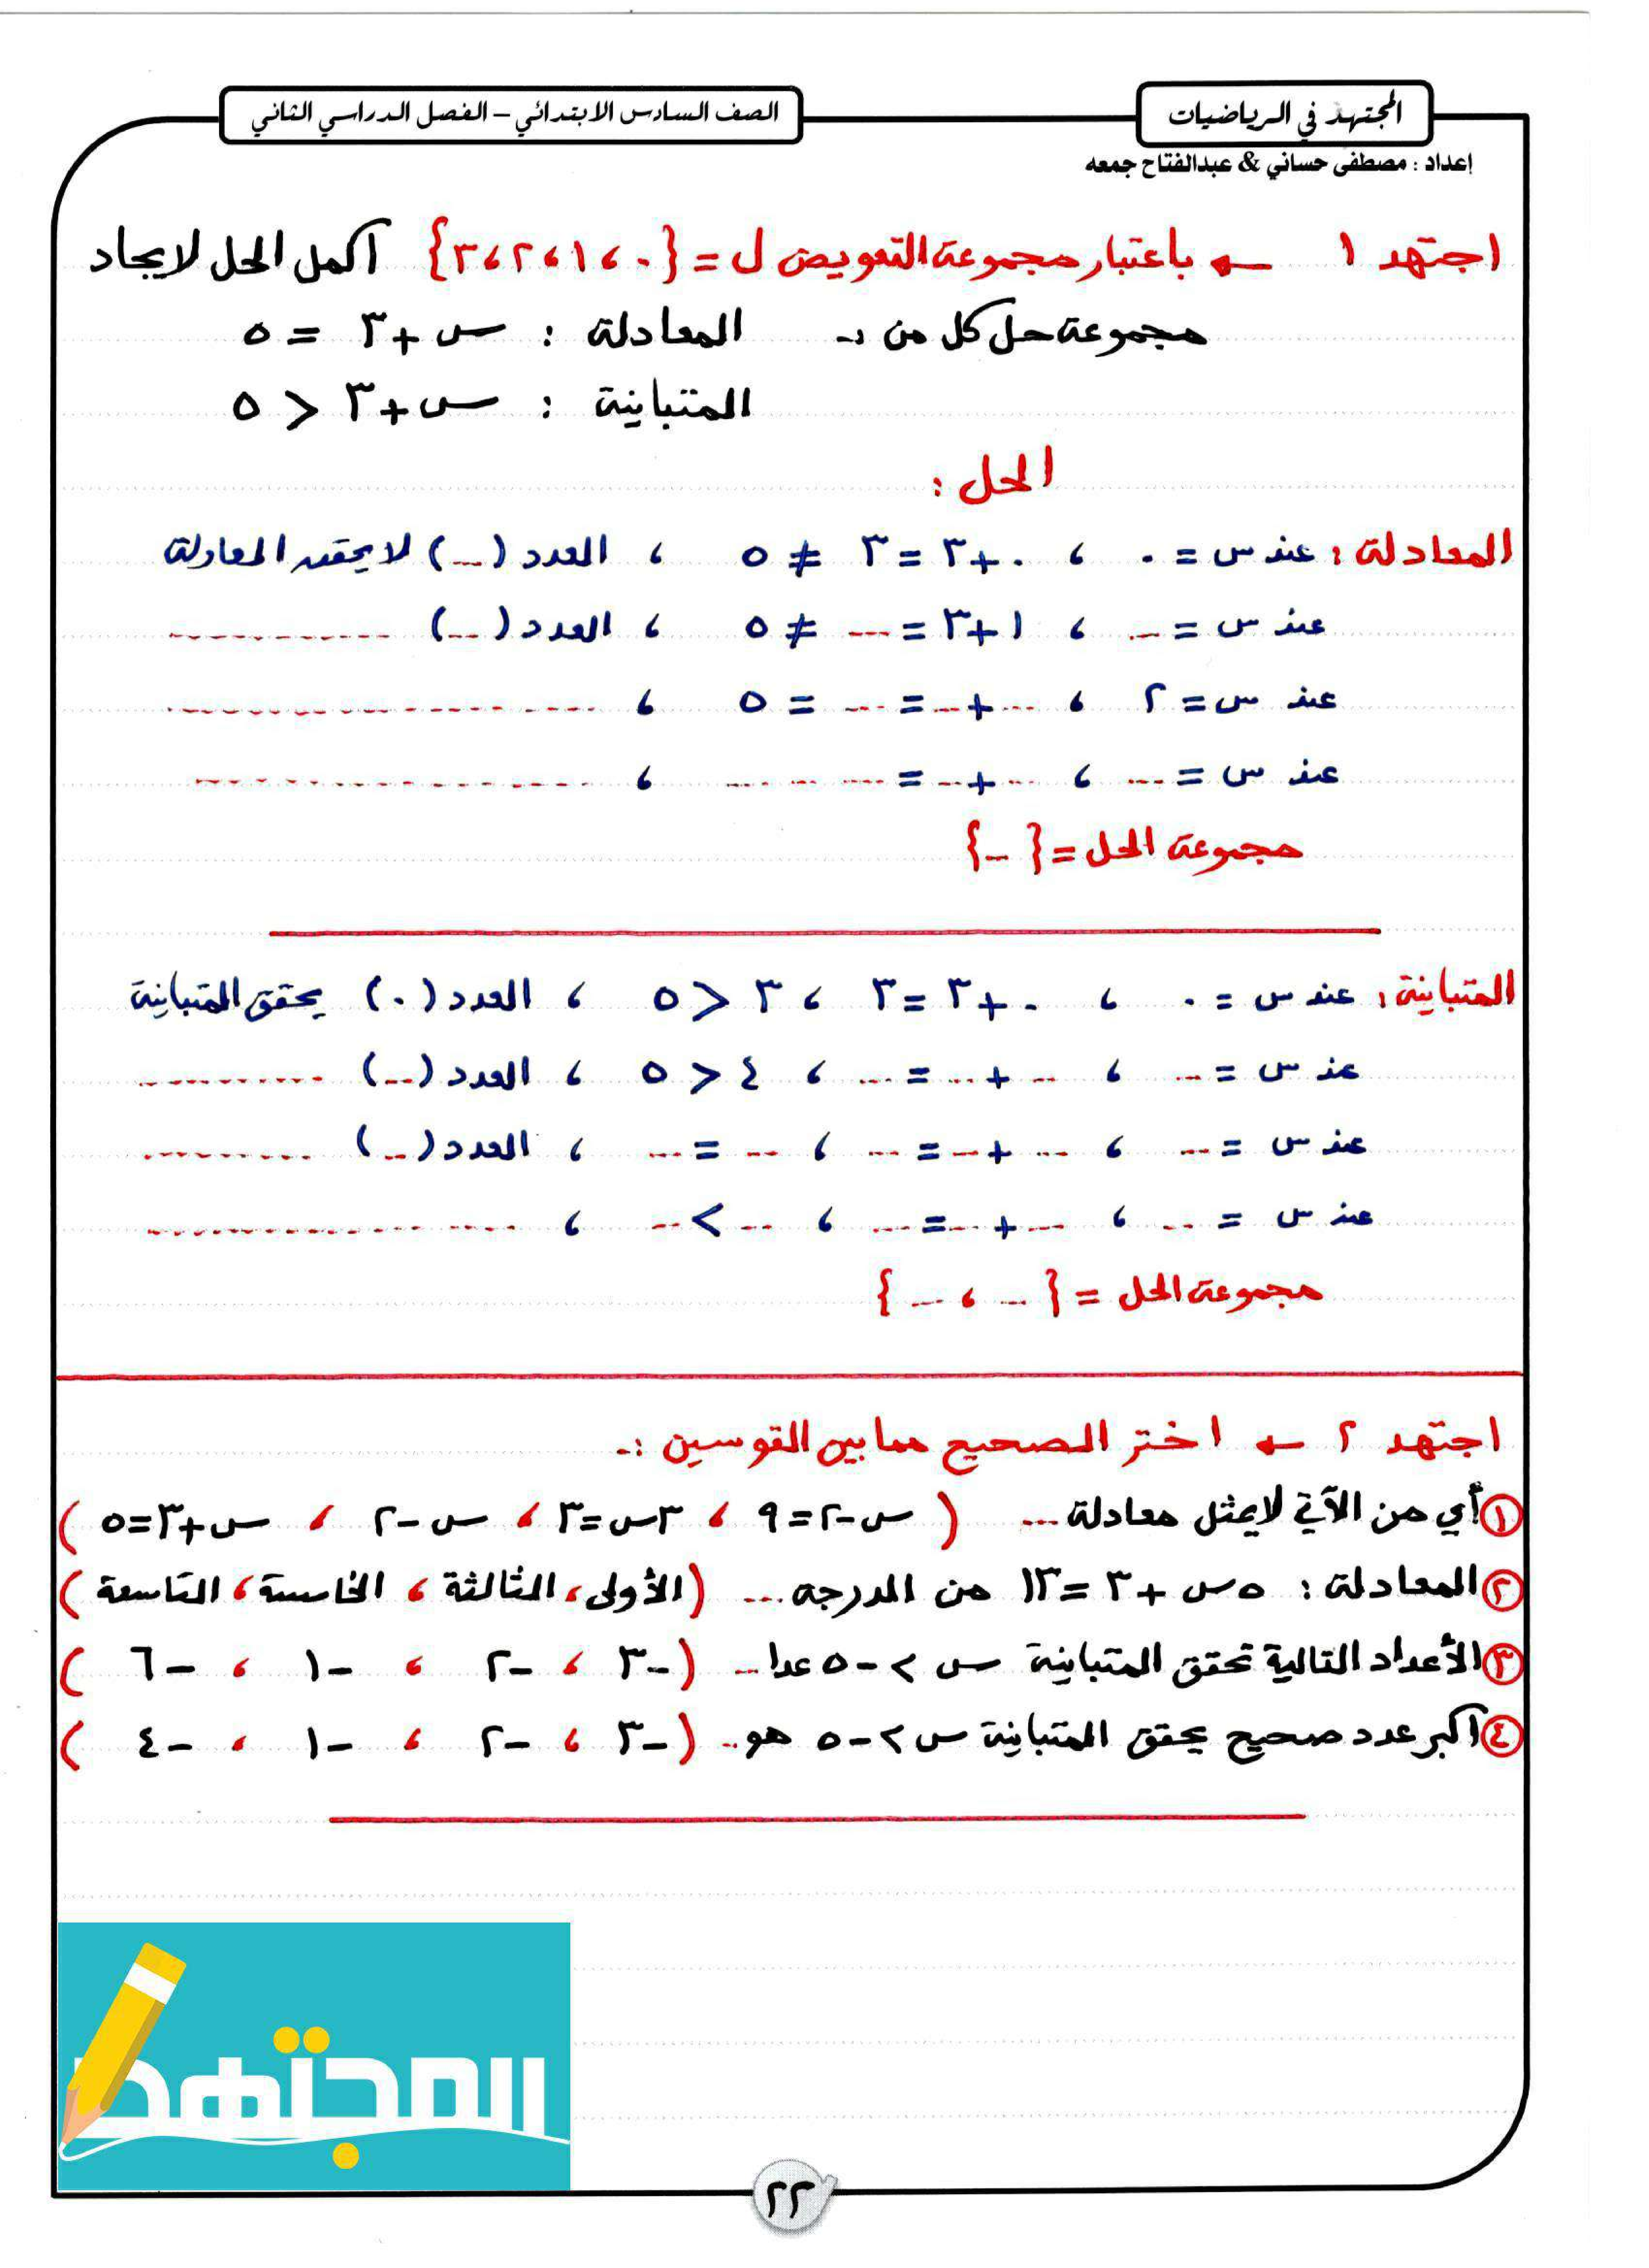 المجتهد في الرياضيات
الصف السادس الابتدائي – الفصل الدراسي الثاني
إعداد : مصطفى حساني & عبدالفتاح جمعه
اجتهد ١ ← باعتبار مجموعة التعويض ل = {٠ ، ١ ، ٢ ، ٣} أكمل الحل لايجاد
مجموعة حل كل من :- المعادلة : س + ٣ = ٥
المتباينة : س + ٣ < ٥
الحل :
المعادلة : عند س = ٠ ، ٠ + ٣ = ٣ ≠ ٥ ، العدد (...) لا يحقق المعادلة
عند س = ... ، ١ + ٣ = ... ≠ ٥ ، العدد (...) ............
عند س = ٢ ، ... + ... = ... = ٥ ، ....................
عند س = ... ، ... + ... = ... ... ... ، ....................
مجموعة الحل = { ... }
المتباينة : عند س = ٠ ، ٠ + ٣ = ٣ ، ٣ < ٥ ، العدد (٠) يحقق المتباينة
عند س = ... ، ... + ... = ... ، ٤ < ٥ ، العدد (...) ..........
عند س = ... ، ... + ... = ... ، ... = ... ، العدد (...) ..........
عند س = ... ، ... + ... = ... ، ... > ... ، ....................
مجموعة الحل = { ... ، ... }
اجتهد ٢ ← اختر الصحيح مما بين القوسين :-
١ أي من الآتي لا يمثل معادلة ... ( س – ٢ = ٩ ، ٣س = ٣ ، س – ٢ ، س + ٣ = ٥ )
٢ المعادلة : ٥س + ٣ = ١٣ من الدرجة ... ( الأولى ، الثالثة ، الخامسة ، التاسعة )
٣ الأعداد التالية تحقق المتباينة س > –٥ عدا ... ( –٣ ، –٢ ، –١ ، –٦ )
٤ أكبر عدد صحيح يحقق المتباينة س > –٥ هو .. ( –٣ ، –٢ ، –١ ، –٤ )
المجتهد
٢٢